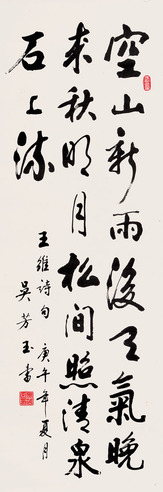 空山新雨後天氣晚
来秋明月松間照清泉
石上流
王維詩句 庚午年夏月
吳芳玉書